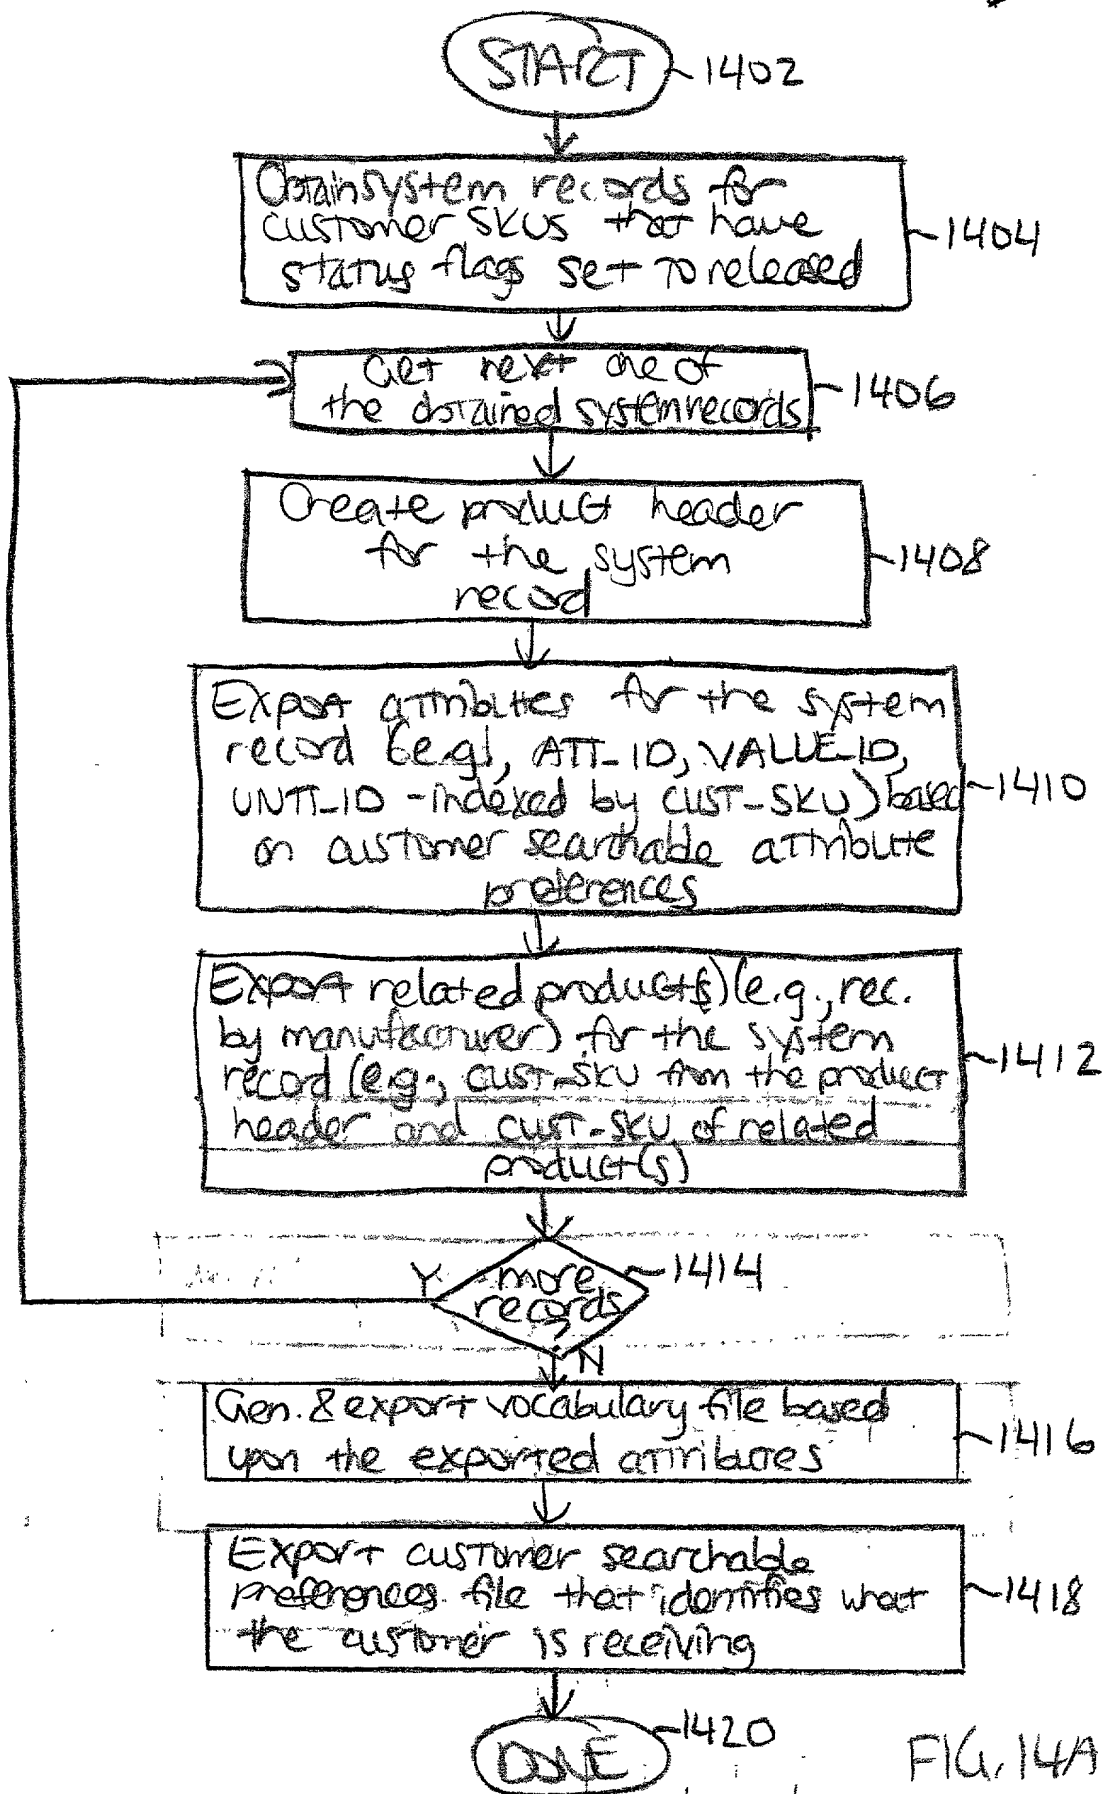 START 1402
Obtain system records for
customer SKUs that have
status flags set to released
1404
Get next one of
the obtained system records
1406
Create product header
for the system
record
1408
Export attributes for the system
record (e.g., ATT_ID, VALUE_ID,
UNIT_ID - indexed by CUST_SKU) based
on customer searchable attribute
preferences
1410
Export related product(s) (e.g., rec.
by manufacturer) for the system
record (e.g., CUST_SKU from the product
header and CUST_SKU of related
product(s)
1412
Y more
records
?
1414
N
Gen. & export vocabulary file based
upon the exported attributes
1416
Export customer searchable
preferences file that identifies what
the customer is receiving
1418
DONE 1420
FIG. 14A